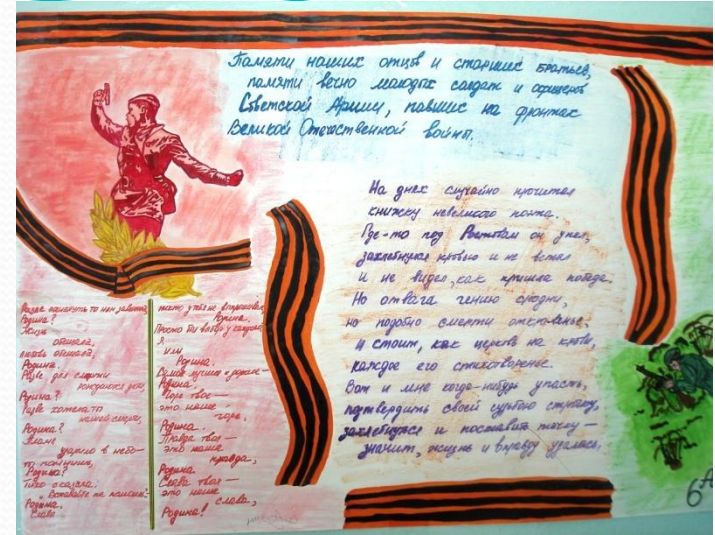 Памяти наших отцов и старших братьев,
памяти вечно молодых солдат и офицеров
Советской Армии, павших на фронтах
Великой Отечественной войны.
На днях случайно прочитал
книжку невеликого поэта.
Где-то под Ростовом он упал,
захлебнулся кровью и не встал
и не видел, как пришла победа.
Но отвага гению сродни,
но подобно смерти откровенье.
И стоит, как церковь на крови,
каждое его стихотворенье.
Вот и мне когда-нибудь упасть,
подтвердить своей судьбою строчку,
захлебнуться и поставить точку —
значит, жизнь и вправду удалась.
Разве погибнуть ты нам завещала,
Родина?
Жизнь
обещала,
любовь обещала,
Родина.
Разве для смерти
рождаются дети,
Родина?
Разве хотела ты
нашей смерти,
Родина?
Пламя
ударило в небо —
ты помнишь,
Родина?
Тихо сказала:
„Вставайте на помощь"
Родина.
Славы
никто у тебя не выпрашивал,
Родина.
Просто был выбор у каждого:
я
или
Родина.
Самое лучшее и дорогое —
Родина.
Горе твоё —
это наше
горе,
Родина.
Правда твоя —
это наша
правда,
Родина.
Слава твоя —
это наша
слава,
Родина!
6 А